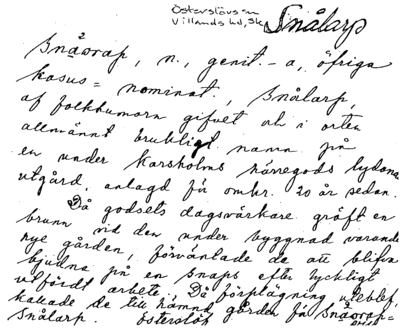 Österslövs sn
Villands hd, Sk.
Snålarp
Snåorap, n., genit. -a, öfriga
kasus = nominat., Snålarp,
af folkhumorn gifvet och i orten
allmännt brukligt namn på
en under Karsholms herregods lydande
utgård, anlagd för omkr. 20 år sedan.
Då godsets dagsvärkare gräft en
brunn vid den under byggnad varande
nye gården, förväntade de att blifva
bjudna på en snaps efter lyckligt
utfördt arbete. Då förplägning uteblef,
kallade de till hämnd gården för Snåorap
Snålarp. Österslöf